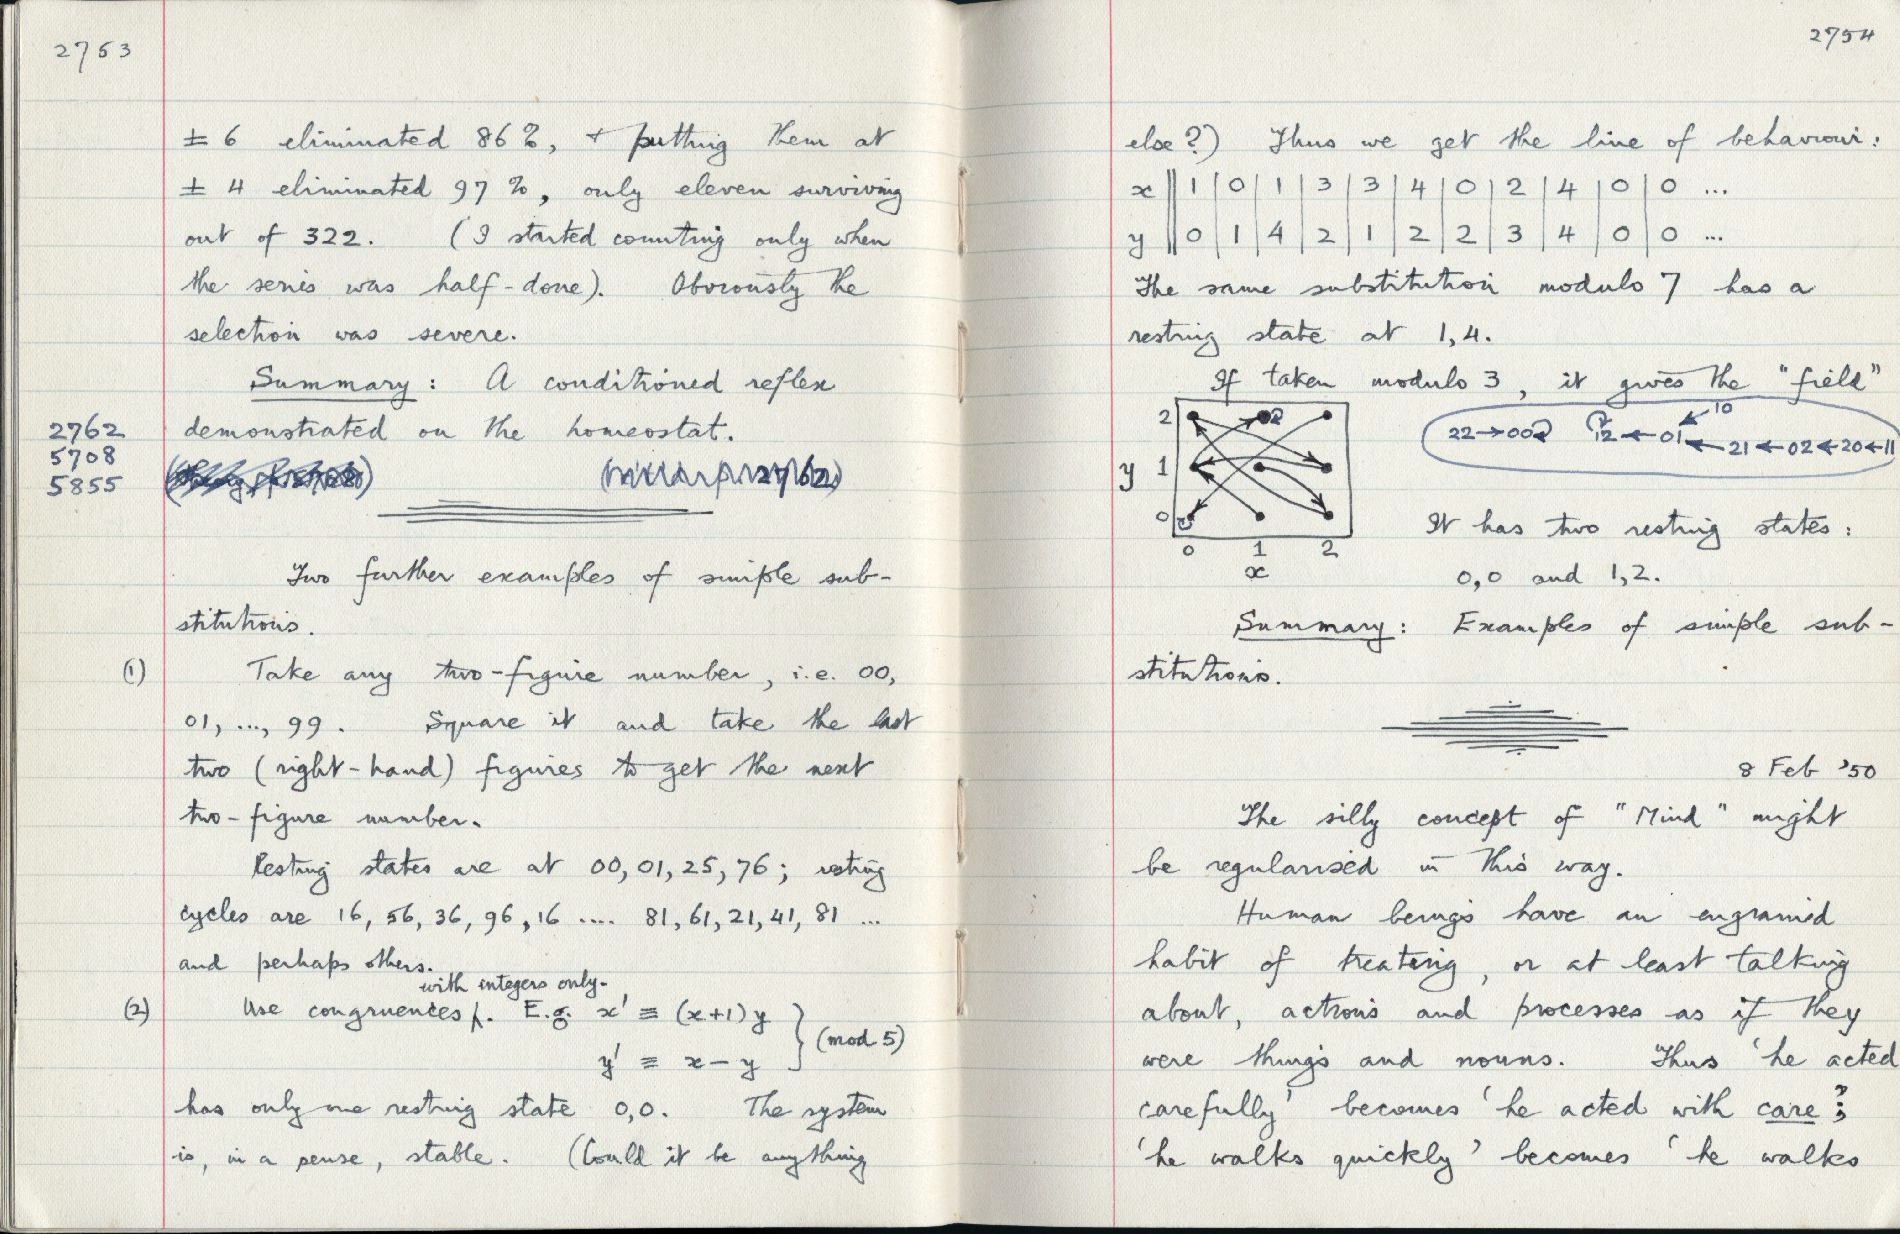 2753
± 6 eliminated 86%, + putting them at
± 4 eliminated 97%, only eleven surviving
out of 322. (I started counting only when
the series was half-done). Obviously the
selection was severe.
Summary: A conditioned reflex
2762 demonstrated on the homeostat.
5708
5855
Two further examples of simple sub-
stitutions.
(1) Take any two-figure number, i.e. 00,
01, ..., 99. Square it and take the last
two (right-hand) figures to get the next
two-figure number.
Resting states are at 00, 01, 25, 76; resting
cycles are 16, 56, 36, 96, 16 .... 81, 61, 21, 41, 81 ...
and perhaps others.
with integers only.
(2) Use congruences. E.g. x' ≡ (x+1)y
y' ≡ x-y } (mod 5)
has only one resting state 0,0. The system
is, in a sense, stable. (Could it be anything
2754
else?) Thus we get the line of behaviour:
x || 1 | 0 | 1 | 3 | 3 | 4 | 0 | 2 | 4 | 0 | 0 ...
y || 0 | 1 | 4 | 2 | 1 | 2 | 2 | 3 | 4 | 0 | 0 ...
The same substitution modulo 7 has a
resting state at 1,4.
If taken modulo 3, it gives the "field"
2
y 1
0
0 1 2
x
10
22→00 12←01←21←02←20←11
It has two resting states:
0,0 and 1,2.
Summary: Examples of simple sub-
stitutions.
8 Feb '50
The silly concept of "Mind" might
be regularised in this way.
Human beings have an engrained
habit of treating, or at least talking
about, actions and processes as if they
were things and nouns. Thus 'he acted
carefully' becomes 'he acted with care';
'he walks quickly' becomes 'he walks